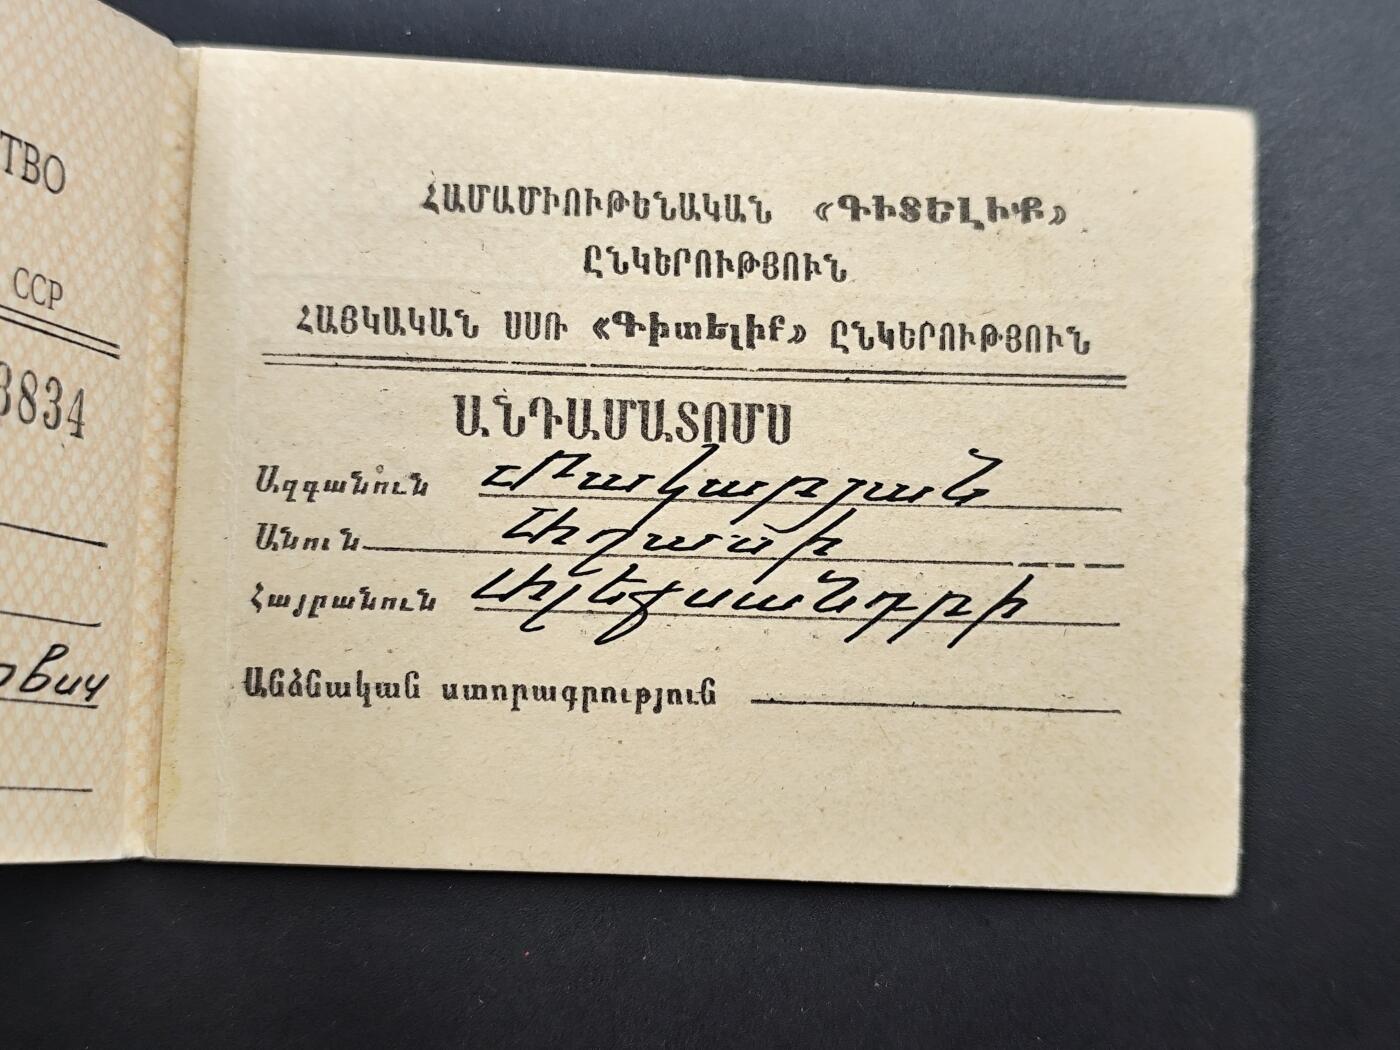 ТВО
ССР
3834
ович
ՀԱՄԱՄԻՈՒԹԵՆԱԿԱՆ «ԳԻՏԵԼԻՔ»
ԸՆԿԵՐՈՒԹՅՈՒՆ
ՀԱՅԿԱԿԱՆ ՍՍՌ «Գիտելիք» ԸՆԿԵՐՈՒԹՅՈՒՆ
ԱՆԴԱՄԱՏՈՄՍ
Ազգանուն Մակարյան
Անուն Աղասի
Հայրանուն Ալեքսանդրի
Անձնական ստորագրություն